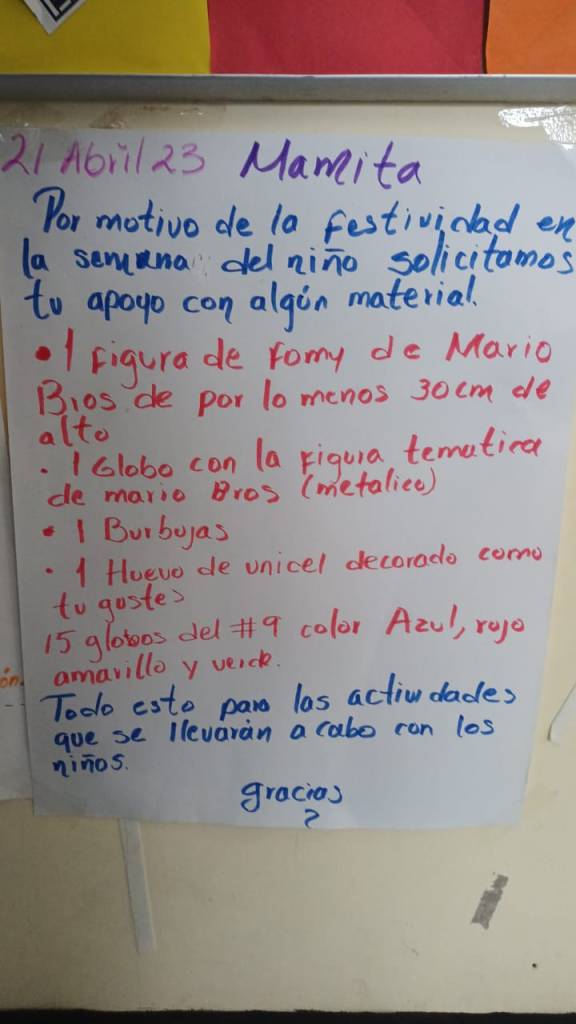 21 Abril 23 Mamita
Por motivo de la festividad en
la semana del niño solicitamos
tu apoyo con algún material.
• 1 Figura de Fomy de Mario
Bros de por lo menos 30cm de
alto
• 1 Globo con la figura tematica
de mario Bros (metalico)
• 1 Burbujas
• 1 Huevo de unicel decorado como
tu gustes
15 globos del #9 color Azul, rojo
amarillo y verde.
Todo esto para las actividades
que se llevarán a cabo con los
niños.
gracias